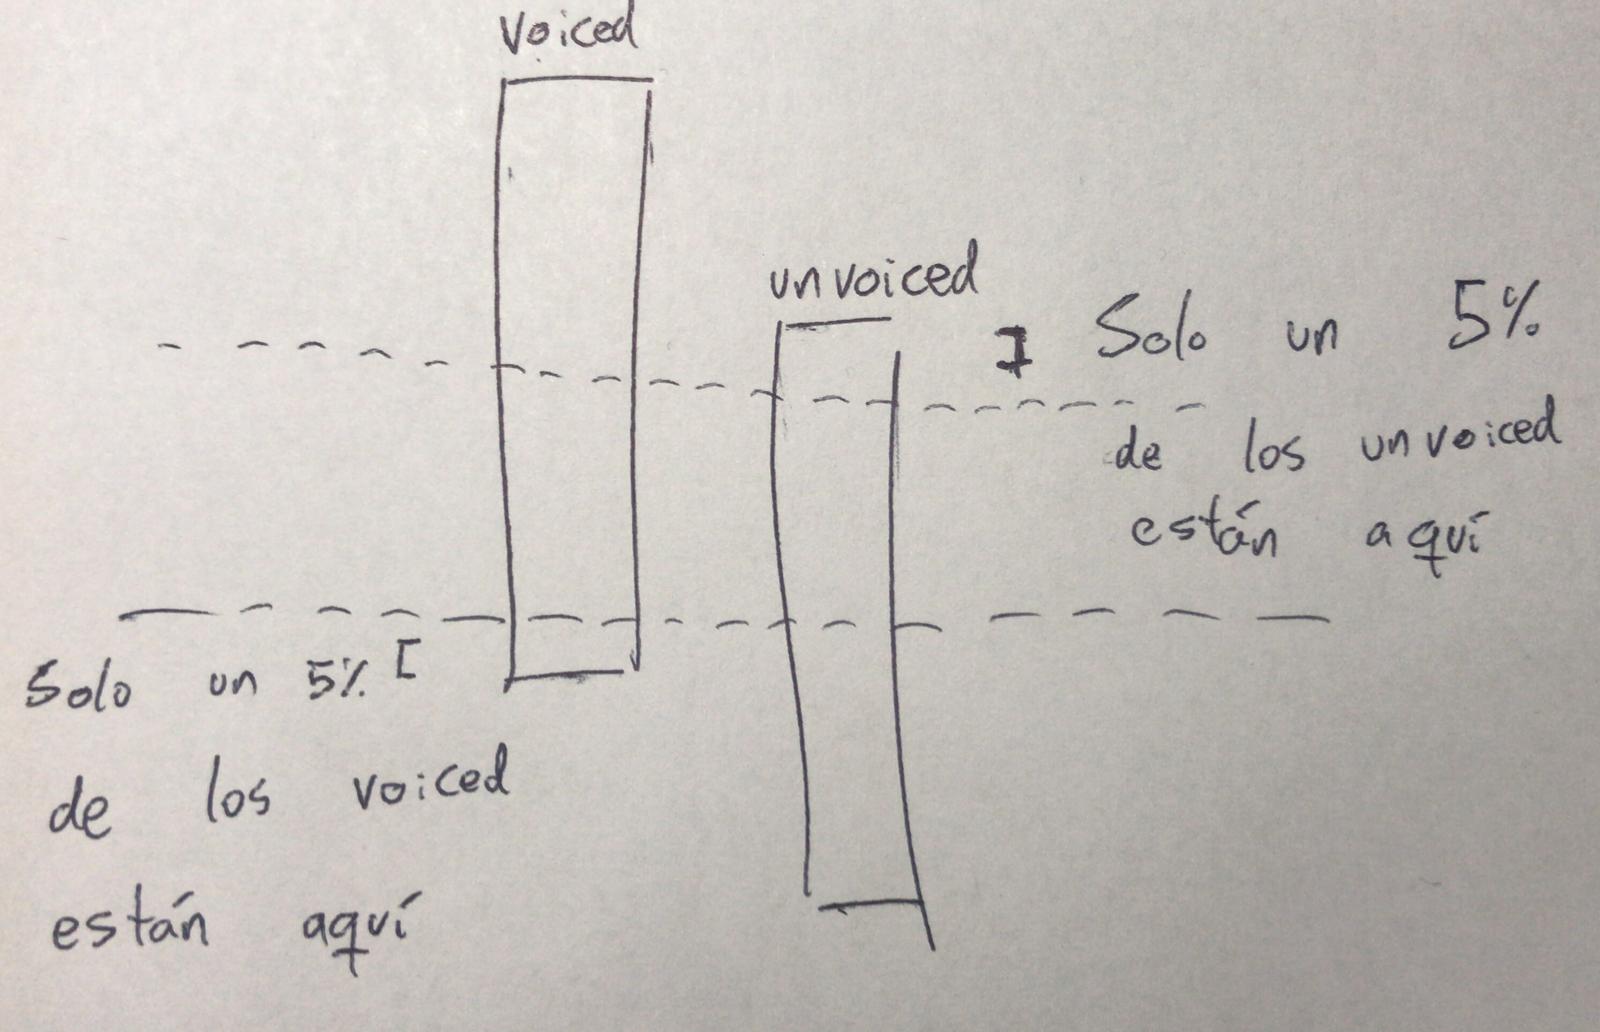 Voiced
unvoiced
Solo un 5%
de los unvoiced
están aquí
Solo un 5%
de los voiced
están aquí